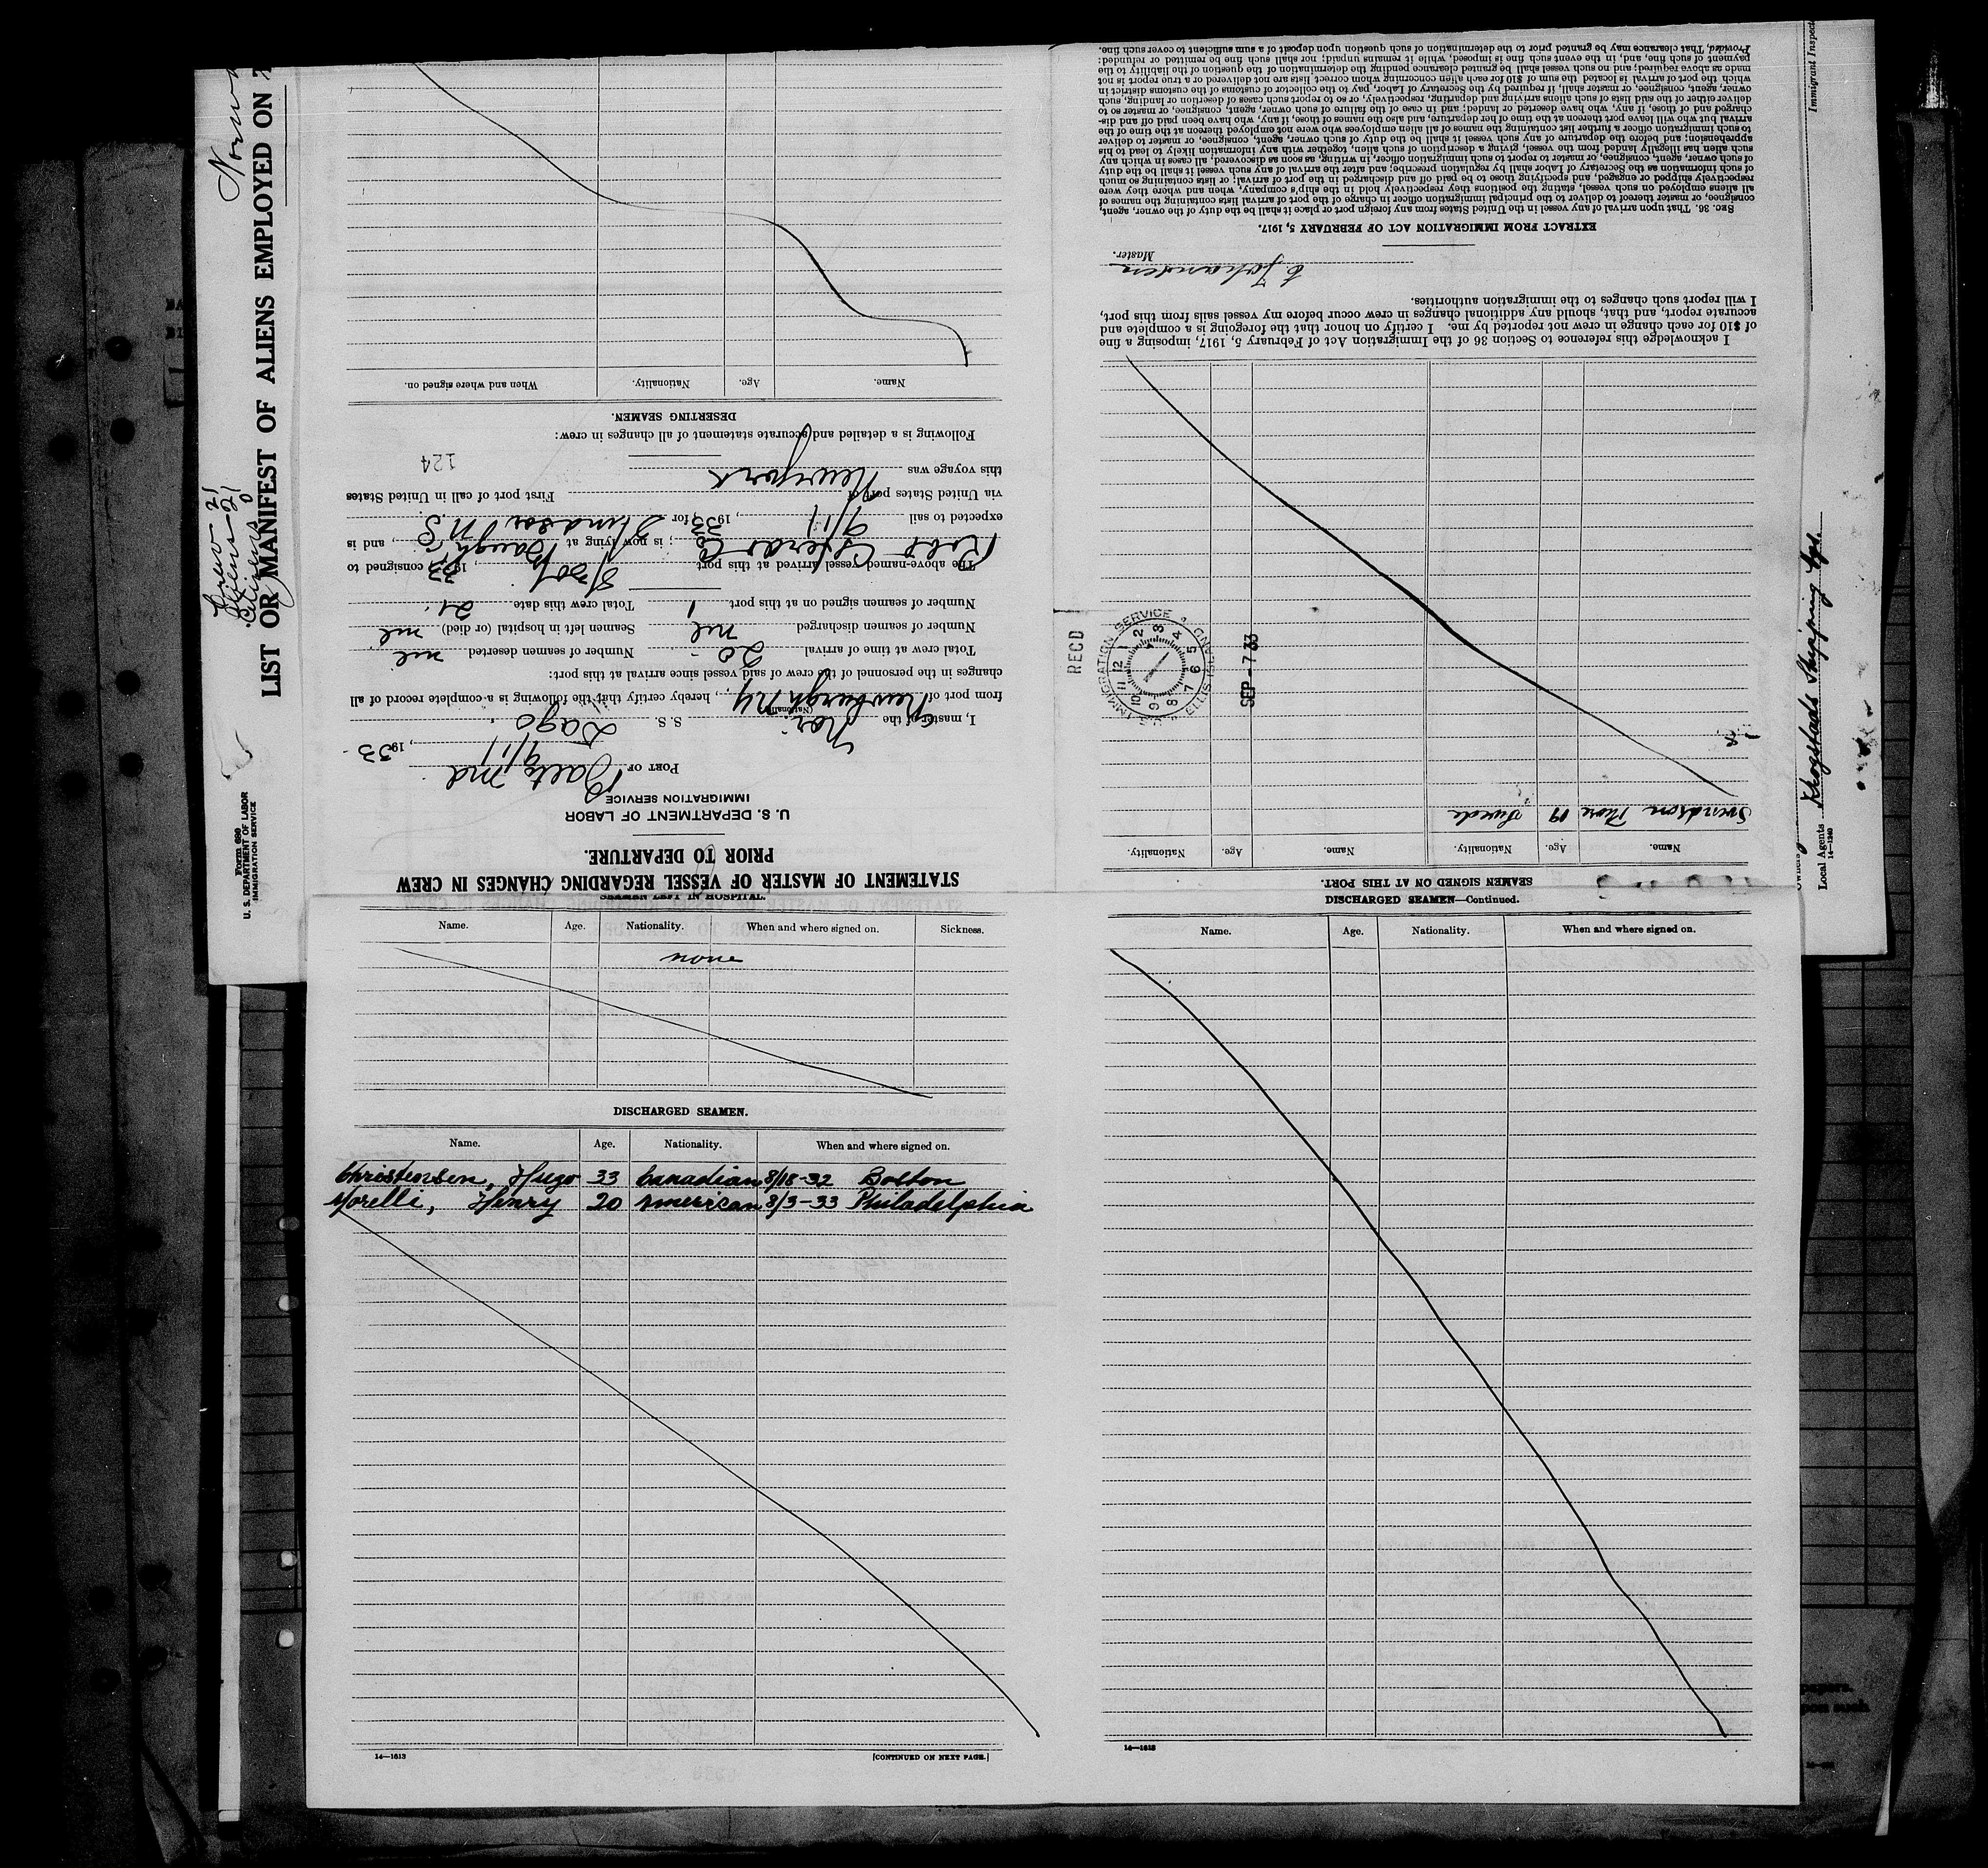 Norw
LIST OR MANIFEST OF ALIENS EMPLOYED ON
Crew 21
Aliens 21
Citizens 0
Form 689
U. S. DEPARTMENT OF LABOR
IMMIGRATION SERVICE
STATEMENT OF MASTER OF VESSEL REGARDING CHANGES IN CREW
PRIOR TO DEPARTURE.
U. S. DEPARTMENT OF LABOR
IMMIGRATION SERVICE
PORT OF Balto Md
9/11, 1933
I, master of the Nor. S. S. Dago,
(Nationality)
from port of Newburgh NY, hereby certify that the following is a complete record of all
changes in the personnel of the crew of said vessel since arrival at this port:
Total crew at time of arrival 20 Number of seamen deserted nil
Number of seamen discharged nil Seamen left in hospital (or died) nil
Number of seamen signed on at this port 1 Total crew this date 21
The above-named vessel arrived at this port 8/30, 1933, consigned to
Co; is now lying at Baugh, and is
expected to sail 9/11, 1933, for Windsor N.S
via United States port of First port of call in United States
this voyage was Newyork
124
Following is a detailed and accurate statement of all changes in crew:
DESERTING SEAMEN.
Name. Age. Nationality. When and where signed on.
SEAMEN SIGNED ON AT THIS PORT.
Name. Age. Nationality. Name. Age. Nationality.
Svendson Thore 19 Swede
I acknowledge this reference to Section 36 of the Immigration Act of February 5, 1917, imposing a fine
of $10 for each change in crew not reported by me. I certify on honor that the foregoing is a complete and
accurate report, and that, should any additional changes in crew occur before my vessel sails from this port,
I will report such changes to the immigration authorities.
Johansen
Master.
EXTRACT FROM IMMIGRATION ACT OF FEBRUARY 5, 1917.
SEC. 36. That upon arrival of any vessel in the United States from any foreign port or place it shall be the duty of the owner, agent,
consignee, or master thereof to deliver to the principal immigration officer in charge of the port of arrival lists containing the names of
all aliens employed on such vessel, stating the positions they respectively hold in the ship's company, when and where they were
respectively shipped or engaged, and specifying those to be paid off and discharged in the port of arrival; or lists containing so much
of such information as the Secretary of Labor shall by regulation prescribe; and after the arrival of any such vessel it shall be the duty
of such owner, agent, consignee, or master to report to such immigration officer, in writing, as soon as discovered, all cases in which any
such alien has illegally landed from the vessel, giving a description of such alien, together with any information likely to lead to his
apprehension; and before the departure of any such vessel it shall be the duty of such owner, agent, consignee, or master to deliver
to such immigration officer a further list containing the names of all alien employees who were not employed thereon at the time of the
arrival but who will leave port thereon at the time of her departure, and also the names of those, if any, who have been paid off and dis-
charged and of those, if any, who have deserted or landed; and in case of the failure of such owner, agent, consignee, or master so to
deliver either of the said lists of such aliens arriving and departing, respectively, or so to report such cases of desertion or landing, such
owner, agent, consignee, or master shall, if required by the Secretary of Labor, pay to the collector of customs of the customs district in
which the port of arrival is located the sum of $10 for each alien concerning whom correct lists are not delivered or a true report is not
made as above required; and no such vessel shall be granted clearance pending the determination of the question of the liability to the
payment of such fine, and, in the event such fine is imposed, while it remains unpaid; nor shall such fine be remitted or refunded:
Provided, That clearance may be granted prior to the determination of such question upon deposit of a sum sufficient to cover such fine.
RECD
IMMIGRATION SERVICE
ELLIS ISLAND
12 1 2 3 4 5 6 7 8 9 10 11
SEP - 7 33
Immigrant Inspec
Owners
Local Agents Krogstads Shipping Agc.
14—1240
SEAMEN LEFT IN HOSPITAL.
Name. Age. Nationality. When and where signed on. Sickness.
none
DISCHARGED SEAMEN.
Name. Age. Nationality. When and where signed on.
Christensen, Hugo 33 Canadian 8/18-32 Bolton
Morelli, Henry 20 American 8/3-33 Philadelphia
14—1613 [CONTINUED ON NEXT PAGE.]
DISCHARGED SEAMEN—Continued.
Name. Age. Nationality. When and where signed on.
14—1613